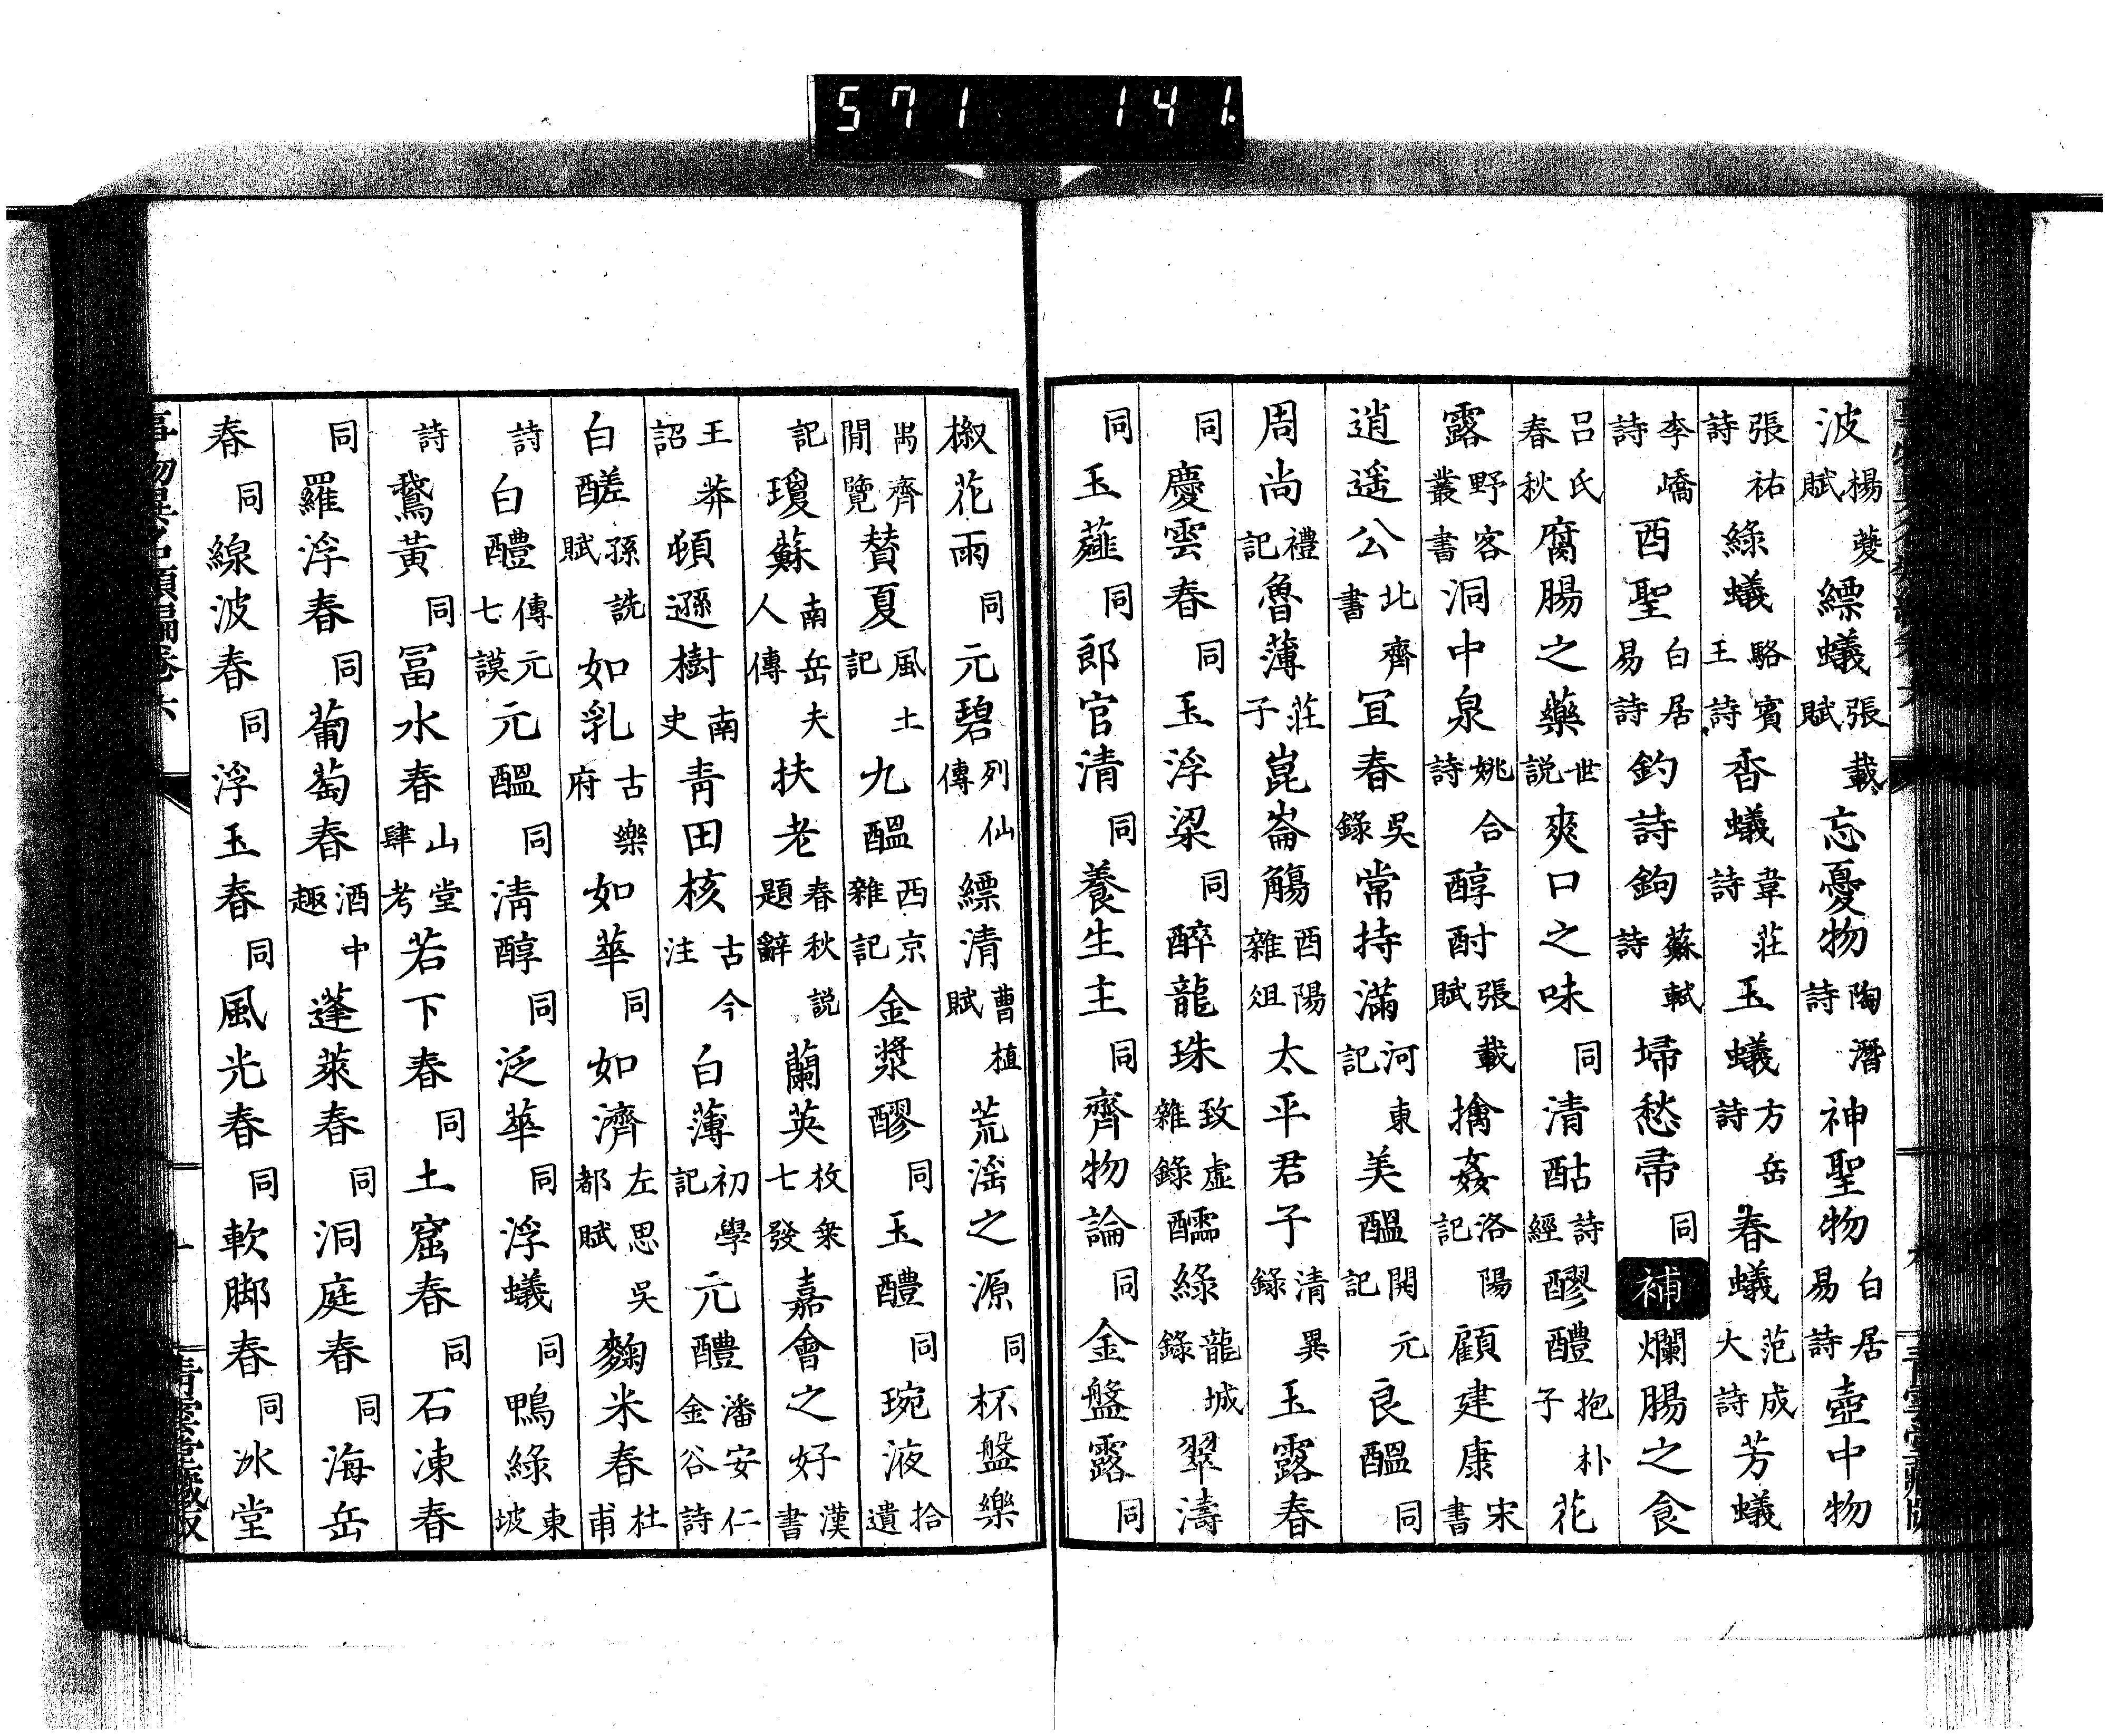 571 141
波楊夔賦縹蟻張載賦忘憂物陶潛詩神聖物白居易詩壺中物
張祐詩綠蟻駱賓王詩香蟻韋莊詩玉蟻方岳詩春蟻范成大詩芳蟻
李嶠詩酉聖白居易詩釣詩鉤蘇軾詩埽愁帚同補爛腸之食
呂氏春秋腐腸之藥世説爽口之味同清酤詩經醪醴抱朴子花
露野客叢書洞中泉姚合詩醇酎張載賦擒姦洛陽記顧建康宋書
逍遥公北齊書宜春吳錄常持滿河東記美醖開元記良醖同
周尚禮記魯薄莊子崑崙觴酉陽雜俎太平君子清異錄玉露春
同慶雲春同玉浮梁同醉龍珠致虛雜錄醽綠龍城錄翠濤
同玉薤同郎官清同養生主同齊物論同金盤露同
椒花雨同元碧列仙傳縹清曹植賦荒淫之源同杯盤樂
周齊閒覽賛夏風土記九醖西京雜記金漿醪同玉醴同琬液拾遺
記瓊蘇南岳夫人傳扶老春秋説題辭蘭英枚衆七發嘉會之好漢書
王莽詔頓遜樹南史青田核古今注白薄初學記元醴潘安仁金谷詩
白醝孫詵賦如乳古樂府如華同如濟左思吳都賦麴米春杜甫
詩白醴傳元七謨元醖同清醇同泛華同浮蟻同鴨綠東坡
詩鵞黃同冨水春山堂肆考若下春同土窟春同石凍春
同羅浮春同葡萄春酒中趣蓬萊春同洞庭春同海岳
春同線波春同浮玉春同風光春同軟脚春同冰堂